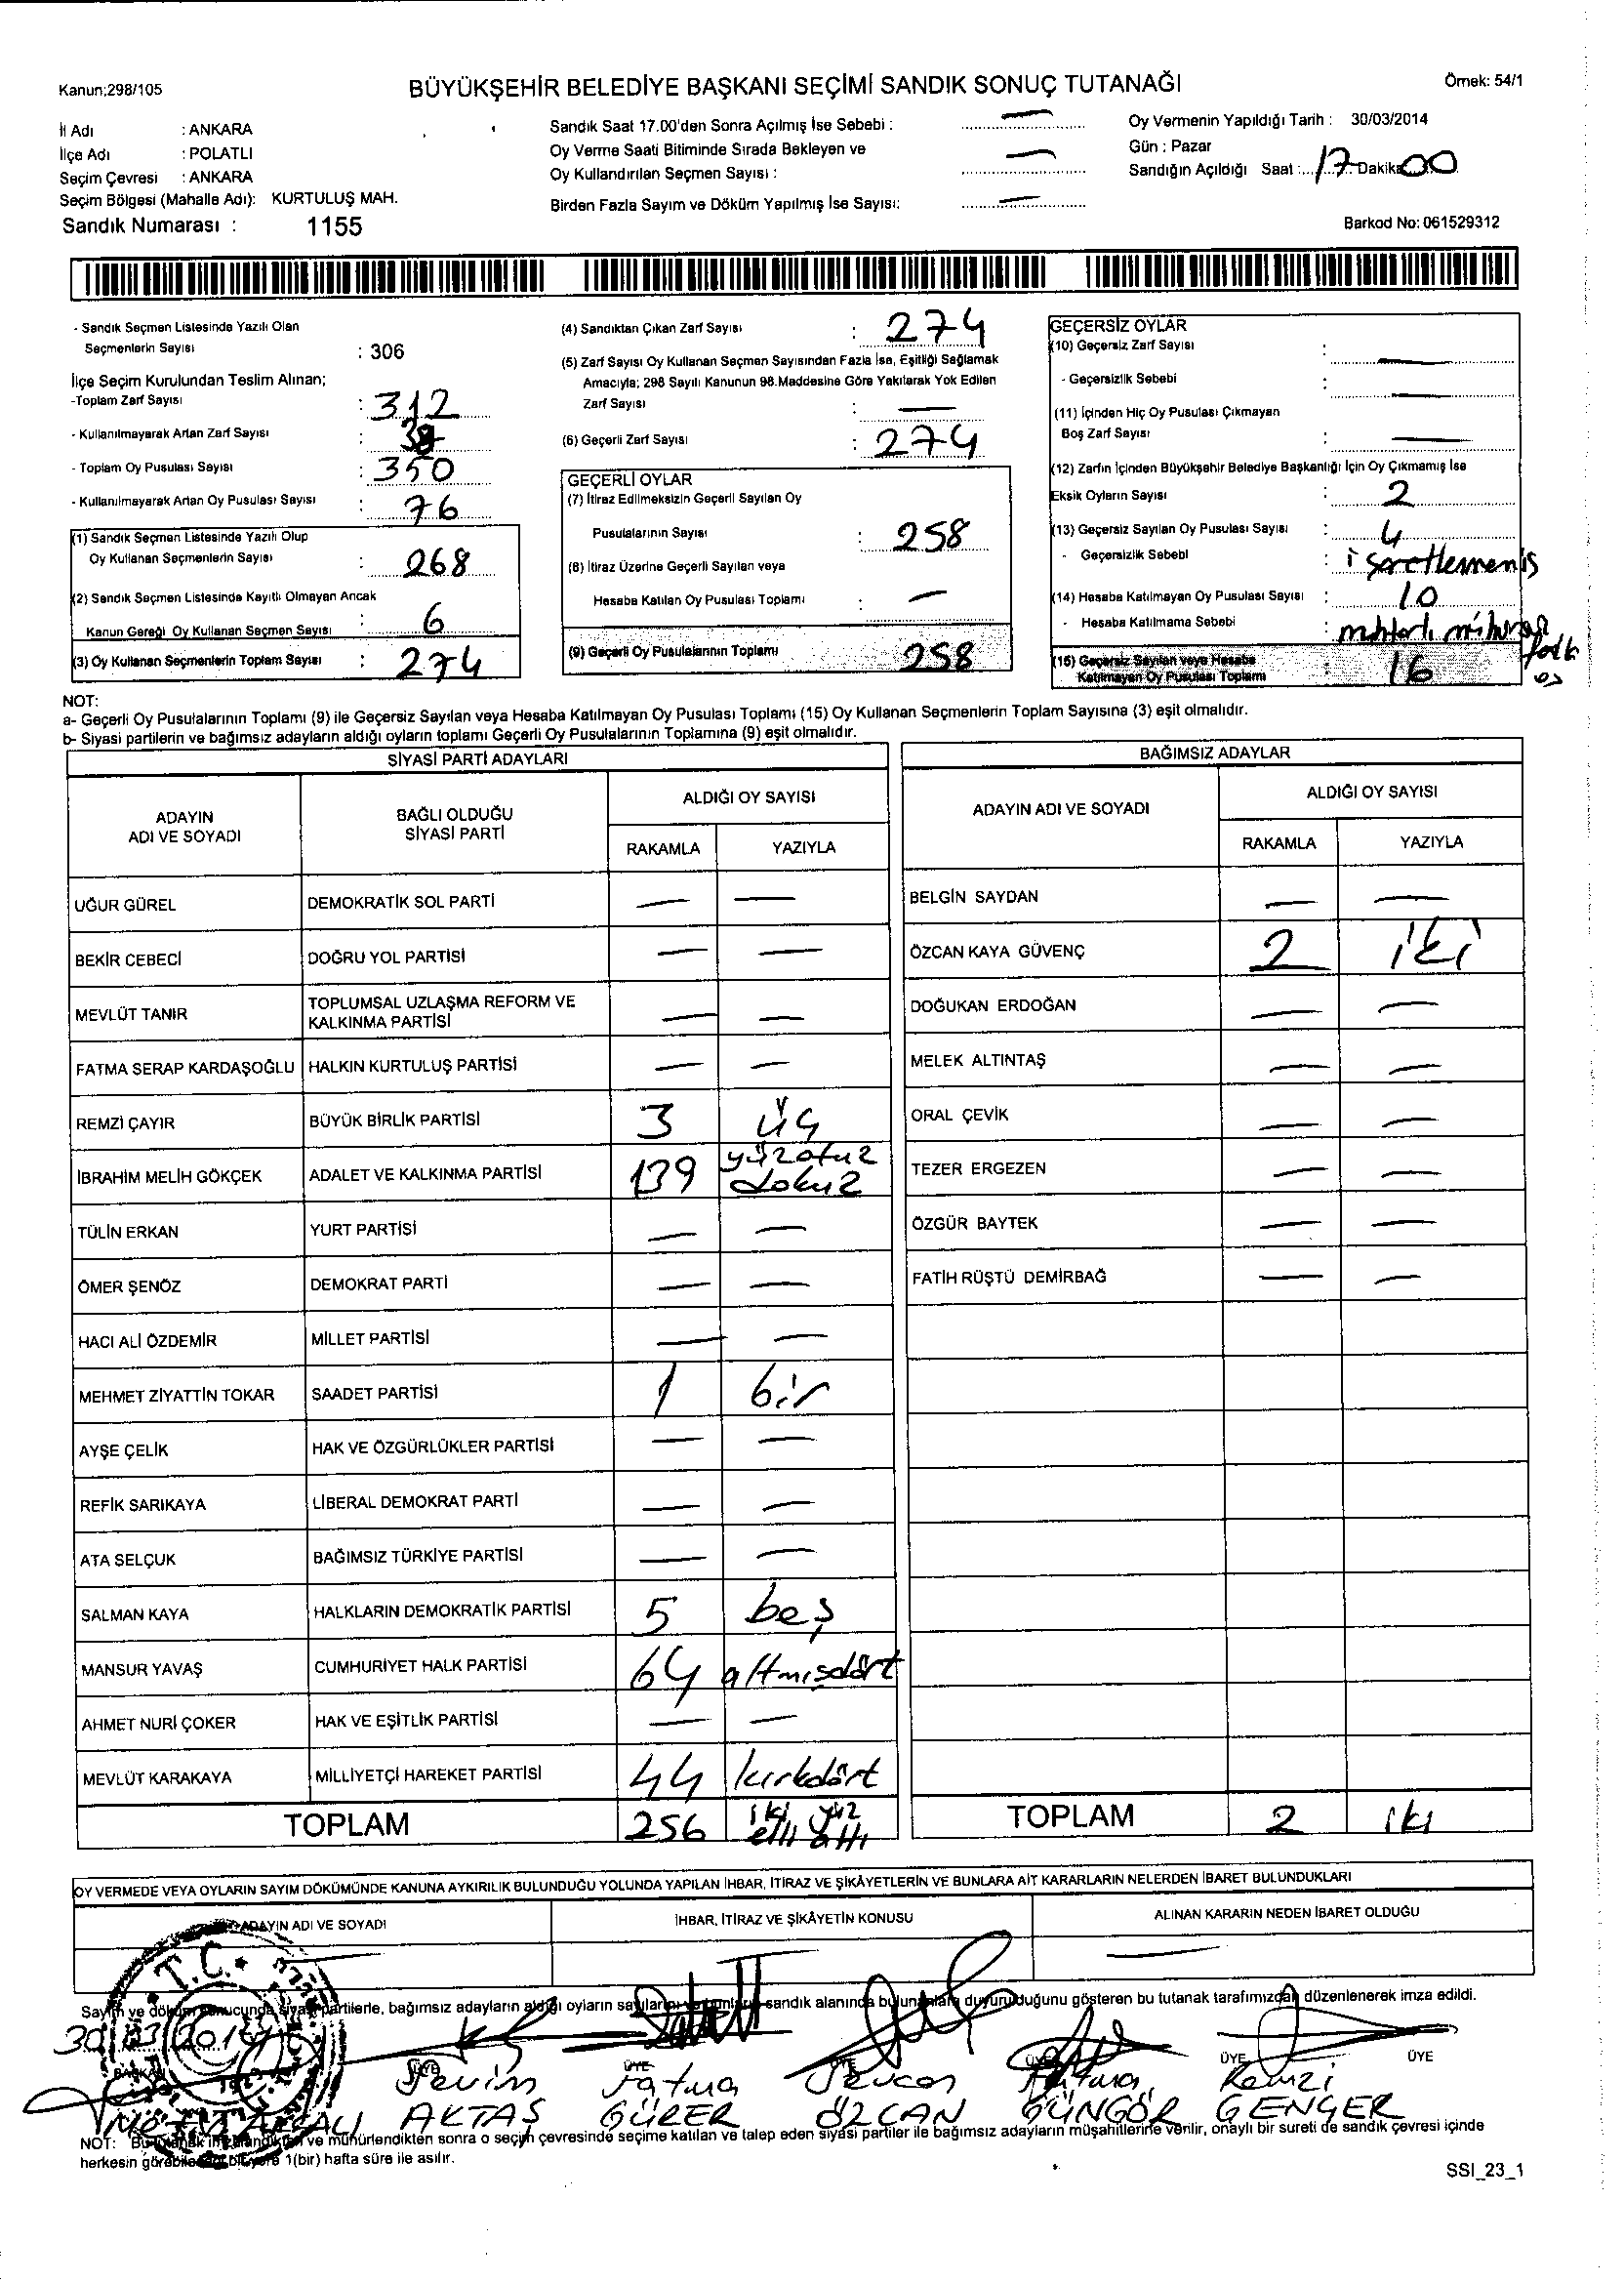 Kanun;298/105
BÜYÜKŞEHİR BELEDİYE BAŞKANI SEÇİMİ SANDIK SONUÇ TUTANAĞI
Örnek: 54/1
İl Adı : ANKARA
İlçe Adı : POLATLI
Seçim Çevresi : ANKARA
Seçim Bölgesi (Mahalle Adı): KURTULUŞ MAH.
Sandık Numarası : 1155
Sandık Saat 17.00'den Sonra Açılmış İse Sebebi : —
Oy Verme Saati Bitiminde Sırada Bekleyen ve
Oy Kullandırılan Seçmen Sayısı : —
Birden Fazla Sayım ve Döküm Yapılmış İse Sayısı: —
Oy Vermenin Yapıldığı Tarih : 30/03/2014
Gün : Pazar
Sandığın Açıldığı Saat :...17.. Dakika 00
Barkod No: 061529312
- Sandık Seçmen Listesinde Yazılı Olan
Seçmenlerin Sayısı : 306
İlçe Seçim Kurulundan Teslim Alınan;
-Toplam Zarf Sayısı : 312
- Kullanılmayarak Artan Zarf Sayısı : 38
- Toplam Oy Pusulası Sayısı : 350
- Kullanılmayarak Artan Oy Pusulası Sayısı : 76
(1) Sandık Seçmen Listesinde Yazılı Olup
Oy Kullanan Seçmenlerin Sayısı : 268
(2) Sandık Seçmen Listesinde Kayıtlı Olmayan Ancak
Kanun Gereği Oy Kullanan Seçmen Sayısı : 6
(3) Oy Kullanan Seçmenlerin Toplam Sayısı : 274
(4) Sandıktan Çıkan Zarf Sayısı : 274
(5) Zarf Sayısı Oy Kullanan Seçmen Sayısından Fazla İse, Eşitliği Sağlamak
Amacıyla; 298 Sayılı Kanunun 98.Maddesine Göre Yakılarak Yok Edilen
Zarf Sayısı : —
(6) Geçerli Zarf Sayısı : 274
GEÇERLİ OYLAR
(7) İtiraz Edilmeksizin Geçerli Sayılan Oy
Pusulalarının Sayısı : 258
(8) İtiraz Üzerine Geçerli Sayılan veya
Hesaba Katılan Oy Pusulası Toplamı : —
(9) Geçerli Oy Pusulalarının Toplamı 258
GEÇERSİZ OYLAR
(10) Geçersiz Zarf Sayısı : —
- Geçersizlik Sebebi : —
(11) İçinden Hiç Oy Pusulası Çıkmayan
Boş Zarf Sayısı : —
(12) Zarfın İçinden Büyükşehir Belediye Başkanlığı İçin Oy Çıkmamış İse
Eksik Oyların Sayısı : 2
(13) Geçersiz Sayılan Oy Pusulası Sayısı : 4
- Geçersizlik Sebebi : işaretlenmemiş
(14) Hesaba Katılmayan Oy Pusulası Sayısı : 10
- Hesaba Katılmama Sebebi :
(15) Geçersiz Sayılan veya Hesaba
Katılmayan Oy Pusulası Toplamı : 16
NOT:
a- Geçerli Oy Pusulalarının Toplamı (9) ile Geçersiz Sayılan veya Hesaba Katılmayan Oy Pusulası Toplamı (15) Oy Kullanan Seçmenlerin Toplam Sayısına (3) eşit olmalıdır.
b- Siyasi partilerin ve bağımsız adayların aldığı oyların toplamı Geçerli Oy Pusulalarının Toplamına (9) eşit olmalıdır.
SİYASİ PARTİ ADAYLARI
ADAYIN ADI VE SOYADI BAĞLI OLDUĞU SİYASİ PARTİ ALDIĞI OY SAYISI
RAKAMLA YAZIYLA
UĞUR GÜREL DEMOKRATİK SOL PARTİ — —
BEKİR CEBECİ DOĞRU YOL PARTİSİ — —
MEVLÜT TANIR TOPLUMSAL UZLAŞMA REFORM VE KALKINMA PARTİSİ — —
FATMA SERAP KARDAŞOĞLU HALKIN KURTULUŞ PARTİSİ — —
REMZİ ÇAYIR BÜYÜK BİRLİK PARTİSİ 3 üç
İBRAHİM MELİH GÖKÇEK ADALET VE KALKINMA PARTİSİ 139 yüzotuz dokuz
TÜLİN ERKAN YURT PARTİSİ — —
ÖMER ŞENÖZ DEMOKRAT PARTİ — —
HACI ALİ ÖZDEMİR MİLLET PARTİSİ — —
MEHMET ZİYATTİN TOKAR SAADET PARTİSİ 1 bir
AYŞE ÇELİK HAK VE ÖZGÜRLÜKLER PARTİSİ — —
REFİK SARIKAYA LİBERAL DEMOKRAT PARTİ — —
ATA SELÇUK BAĞIMSIZ TÜRKİYE PARTİSİ — —
SALMAN KAYA HALKLARIN DEMOKRATİK PARTİSİ 5 beş
MANSUR YAVAŞ CUMHURİYET HALK PARTİSİ 64 altmışdört
AHMET NURİ ÇOKER HAK VE EŞİTLİK PARTİSİ — —
MEVLÜT KARAKAYA MİLLİYETÇİ HAREKET PARTİSİ 44 kırkdört
TOPLAM 256 iki yüz elli altı
BAĞIMSIZ ADAYLAR
ADAYIN ADI VE SOYADI ALDIĞI OY SAYISI
RAKAMLA YAZIYLA
BELGİN SAYDAN — —
ÖZCAN KAYA GÜVENÇ 2 iki
DOĞUKAN ERDOĞAN — —
MELEK ALTINTAŞ — —
ORAL ÇEVİK — —
TEZER ERGEZEN — —
ÖZGÜR BAYTEK — —
FATİH RÜŞTÜ DEMİRBAĞ — —
TOPLAM 2 iki
OY VERMEDE VEYA OYLARIN SAYIM DÖKÜMÜNDE KANUNA AYKIRILIK BULUNDUĞU YOLUNDA YAPILAN İHBAR, İTİRAZ VE ŞİKÂYETLERİN VE BUNLARA AİT KARARLARIN NELERDEN İBARET BULUNDUKLARI
ADAYIN ADI VE SOYADI İHBAR, İTİRAZ VE ŞİKÂYETİN KONUSU ALINAN KARARIN NEDEN İBARET OLDUĞU
T.C.
Sayım ve döküm sonucunda siyasi partilerle, bağımsız adayların aldığı oyların sayılarını ve sandık alanında bulunanlara duyurulduğunu gösteren bu tutanak tarafımızdan düzenlenerek imza edildi.
30/03/2014
BAŞKAN ÜYE ÜYE ÜYE ÜYE ÜYE ÜYE
Sevim Fatma Sevcan Fatma Remzi
AKTAŞ GÜRER ÖZCAN GÜNGÖR GENÇER
NOT: Bu tutanak imzalandıktan ve mühürlendikten sonra o seçim çevresinde seçime katılan ve talep eden siyasi partiler ile bağımsız adayların müşahitlerine verilir, onaylı bir sureti de sandık çevresi içinde
herkesin görebileceği bir yere 1(bir) hafta süre ile asılır.
SSI_23_1